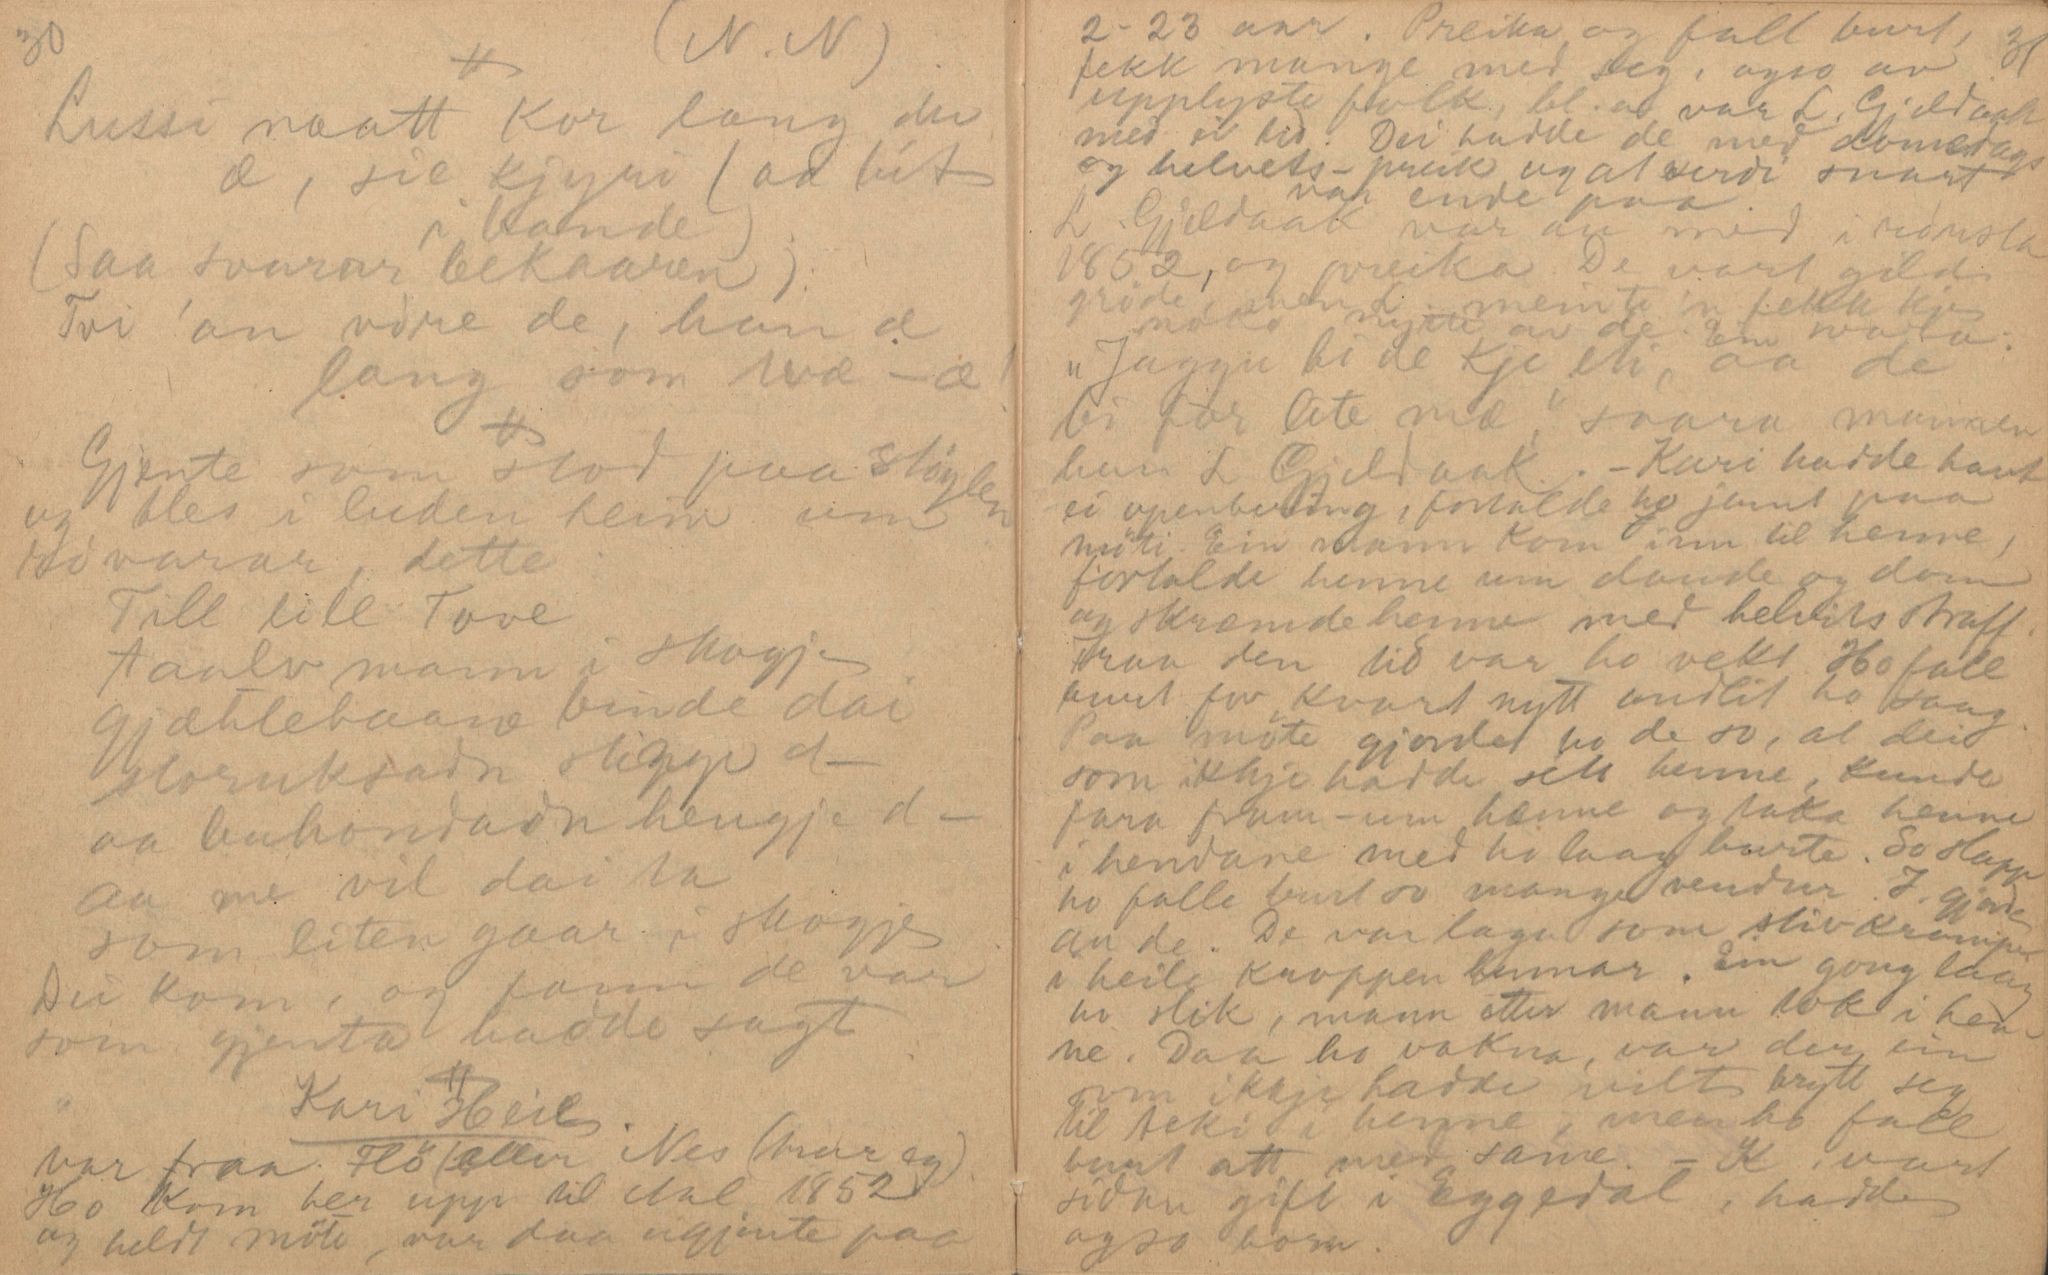 30
(N. N)
Lussi naatt kor lang du
æ, sie kjyri (aa bit
i bande)
(Saa svarar bekaaren).
Tvi 'an vóre de, han æ
lang som tvæ - æ!
Gjente som stod paa stöylen
og bles i luden heim um
róvarar, dette
Till till Tove
taalv mann i skogje
gjætlebaane binde dai
storuksadn stigge d-
aa buhondadn hengje d-
aa me vil dai ta
som liten gaar i skogje
Dei kom, og fann de var
som gjenta hadde sagt
Kari Heie.
var fraa Flö (eller Nes (trur eg)
Ho kom her upp til Aal 1852
og heldt möte, var daa ugjente paa
31
2-23 aar. Preika og fall burt,
fekk mange med seg, ogso av
upplyste folk, bl. a. var L. Gjeldaak
med ei tid. Dei hadde de med domedags
og helvets-preik og at verdi snart
var ende paa.
L. Gjeldaak var au med i rónsla
1852, og preika. De vart gild
gröde, men L. meinte 'n fekk kje
noko nytte av de. Ein svara:
"Jaggu bi de kje eti, aa de
bi for lite mæ," svara mannen
hun L Gjeldaak. - Kari hadde havt
ei openbering, fortalde ho jamt paa
möti. Ein mann kom inn til henne,
fortalde henne um daude og dom
og skræmde henne med helvits straff.
Fraa den tid var ho vekt. Ho fall
burt for kvart nytt andlit ho saag.
Paa möte gjorde ho de so, at dei
som ikkje hadde sett henne, kunde
fara fram-um henne og taka henne
i hendane med ho laag burte. So slapp
ho falle burt so mange vendur. J. gjorde
au de. De var laga som stivkrampe
i heile kroppen hennar. Ein gong laag
ho slik, mann etter mann tok i hen-
ne. Daa ho vakna, var der ein
som ikkje hadde vilt brytt seg
til teki i henne, men ho fall
burt att med same. - K. vart
sidan gift i Eggedal, hadde
ogso born.